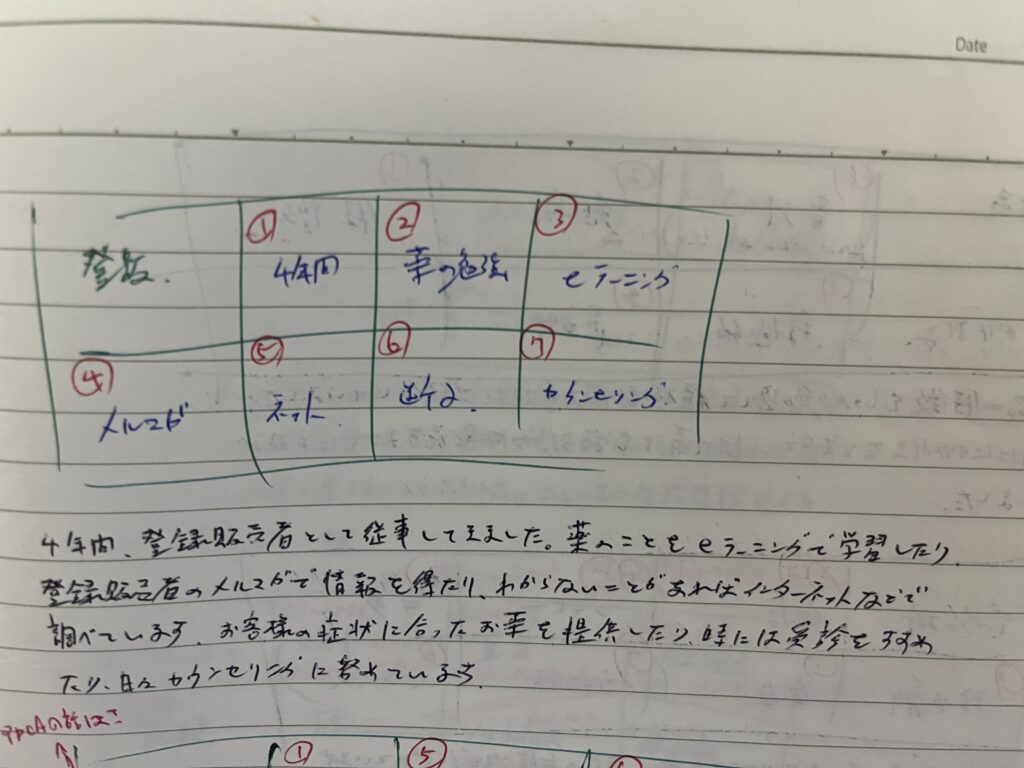 Date
登販. ① 4年間 ② 薬の勉強 ③ eラーニング
④ メルマガ ⑤ ネット ⑥ ⑦ カウンセリング
4年間、登録販売者として従事してきました。薬のことをeラーニングで学習したり、
登録販売者のメルマガで情報を得たり、わからないことがあればインターネットなどで
調べています。お客様の症状に合ったお薬を提供したり、時には受診をすすめ
たり、日々カウンセリングに努めています。
① ⑤